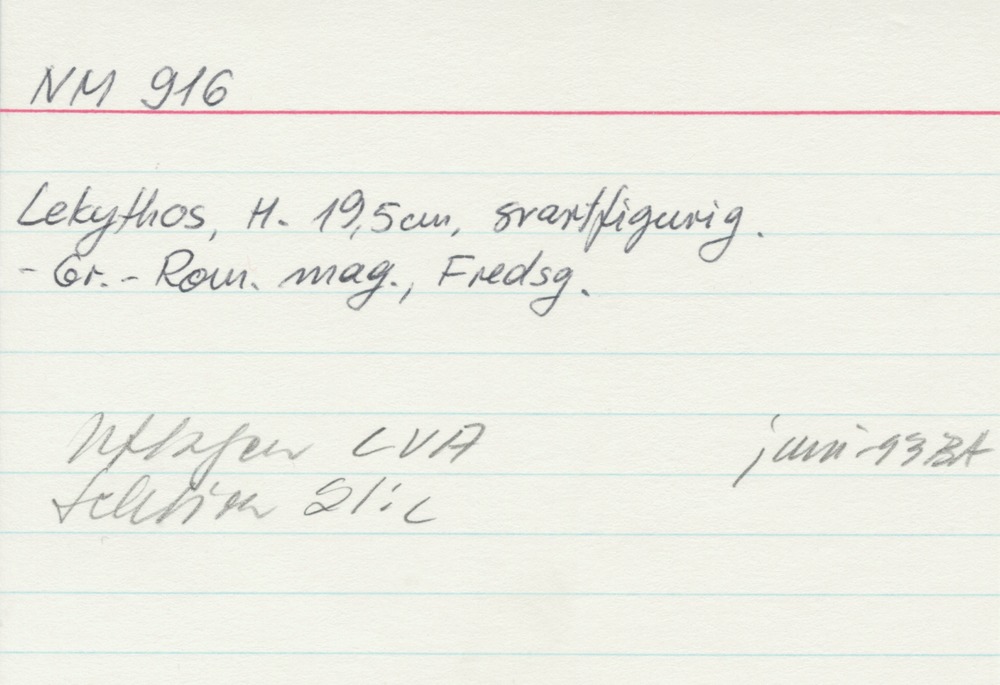 NM 916
Lekythos, H. 19,5cm, svartfigurig.
- Gr.- Rom. mag., Fredsg.
LVA juni -93 BA
Sektion 21:c